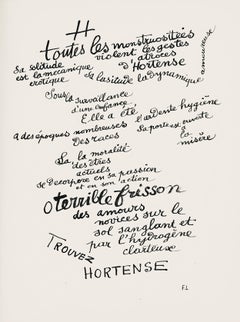 H
toutes les monstruosités
violent les gestes
d'atroces
Hortense
Sa solitude
est la mécanique
érotique
sa lassitude la dynamique
amoureuse
Sous
la surveillance
d'une enfance,
Elle a été
à des époques nombreuses
l'ardente hygiène
Des races
Sa porte est ouverte
à la
misère
Là, la moralité
des êtres
actuels
se Decorpore en sa passion
et en son action
O terrille frisson
des amours
novices sur le
sol sanglant et
par l'hydrogène
clarteux
TROUVEZ
HORTENSE
F L